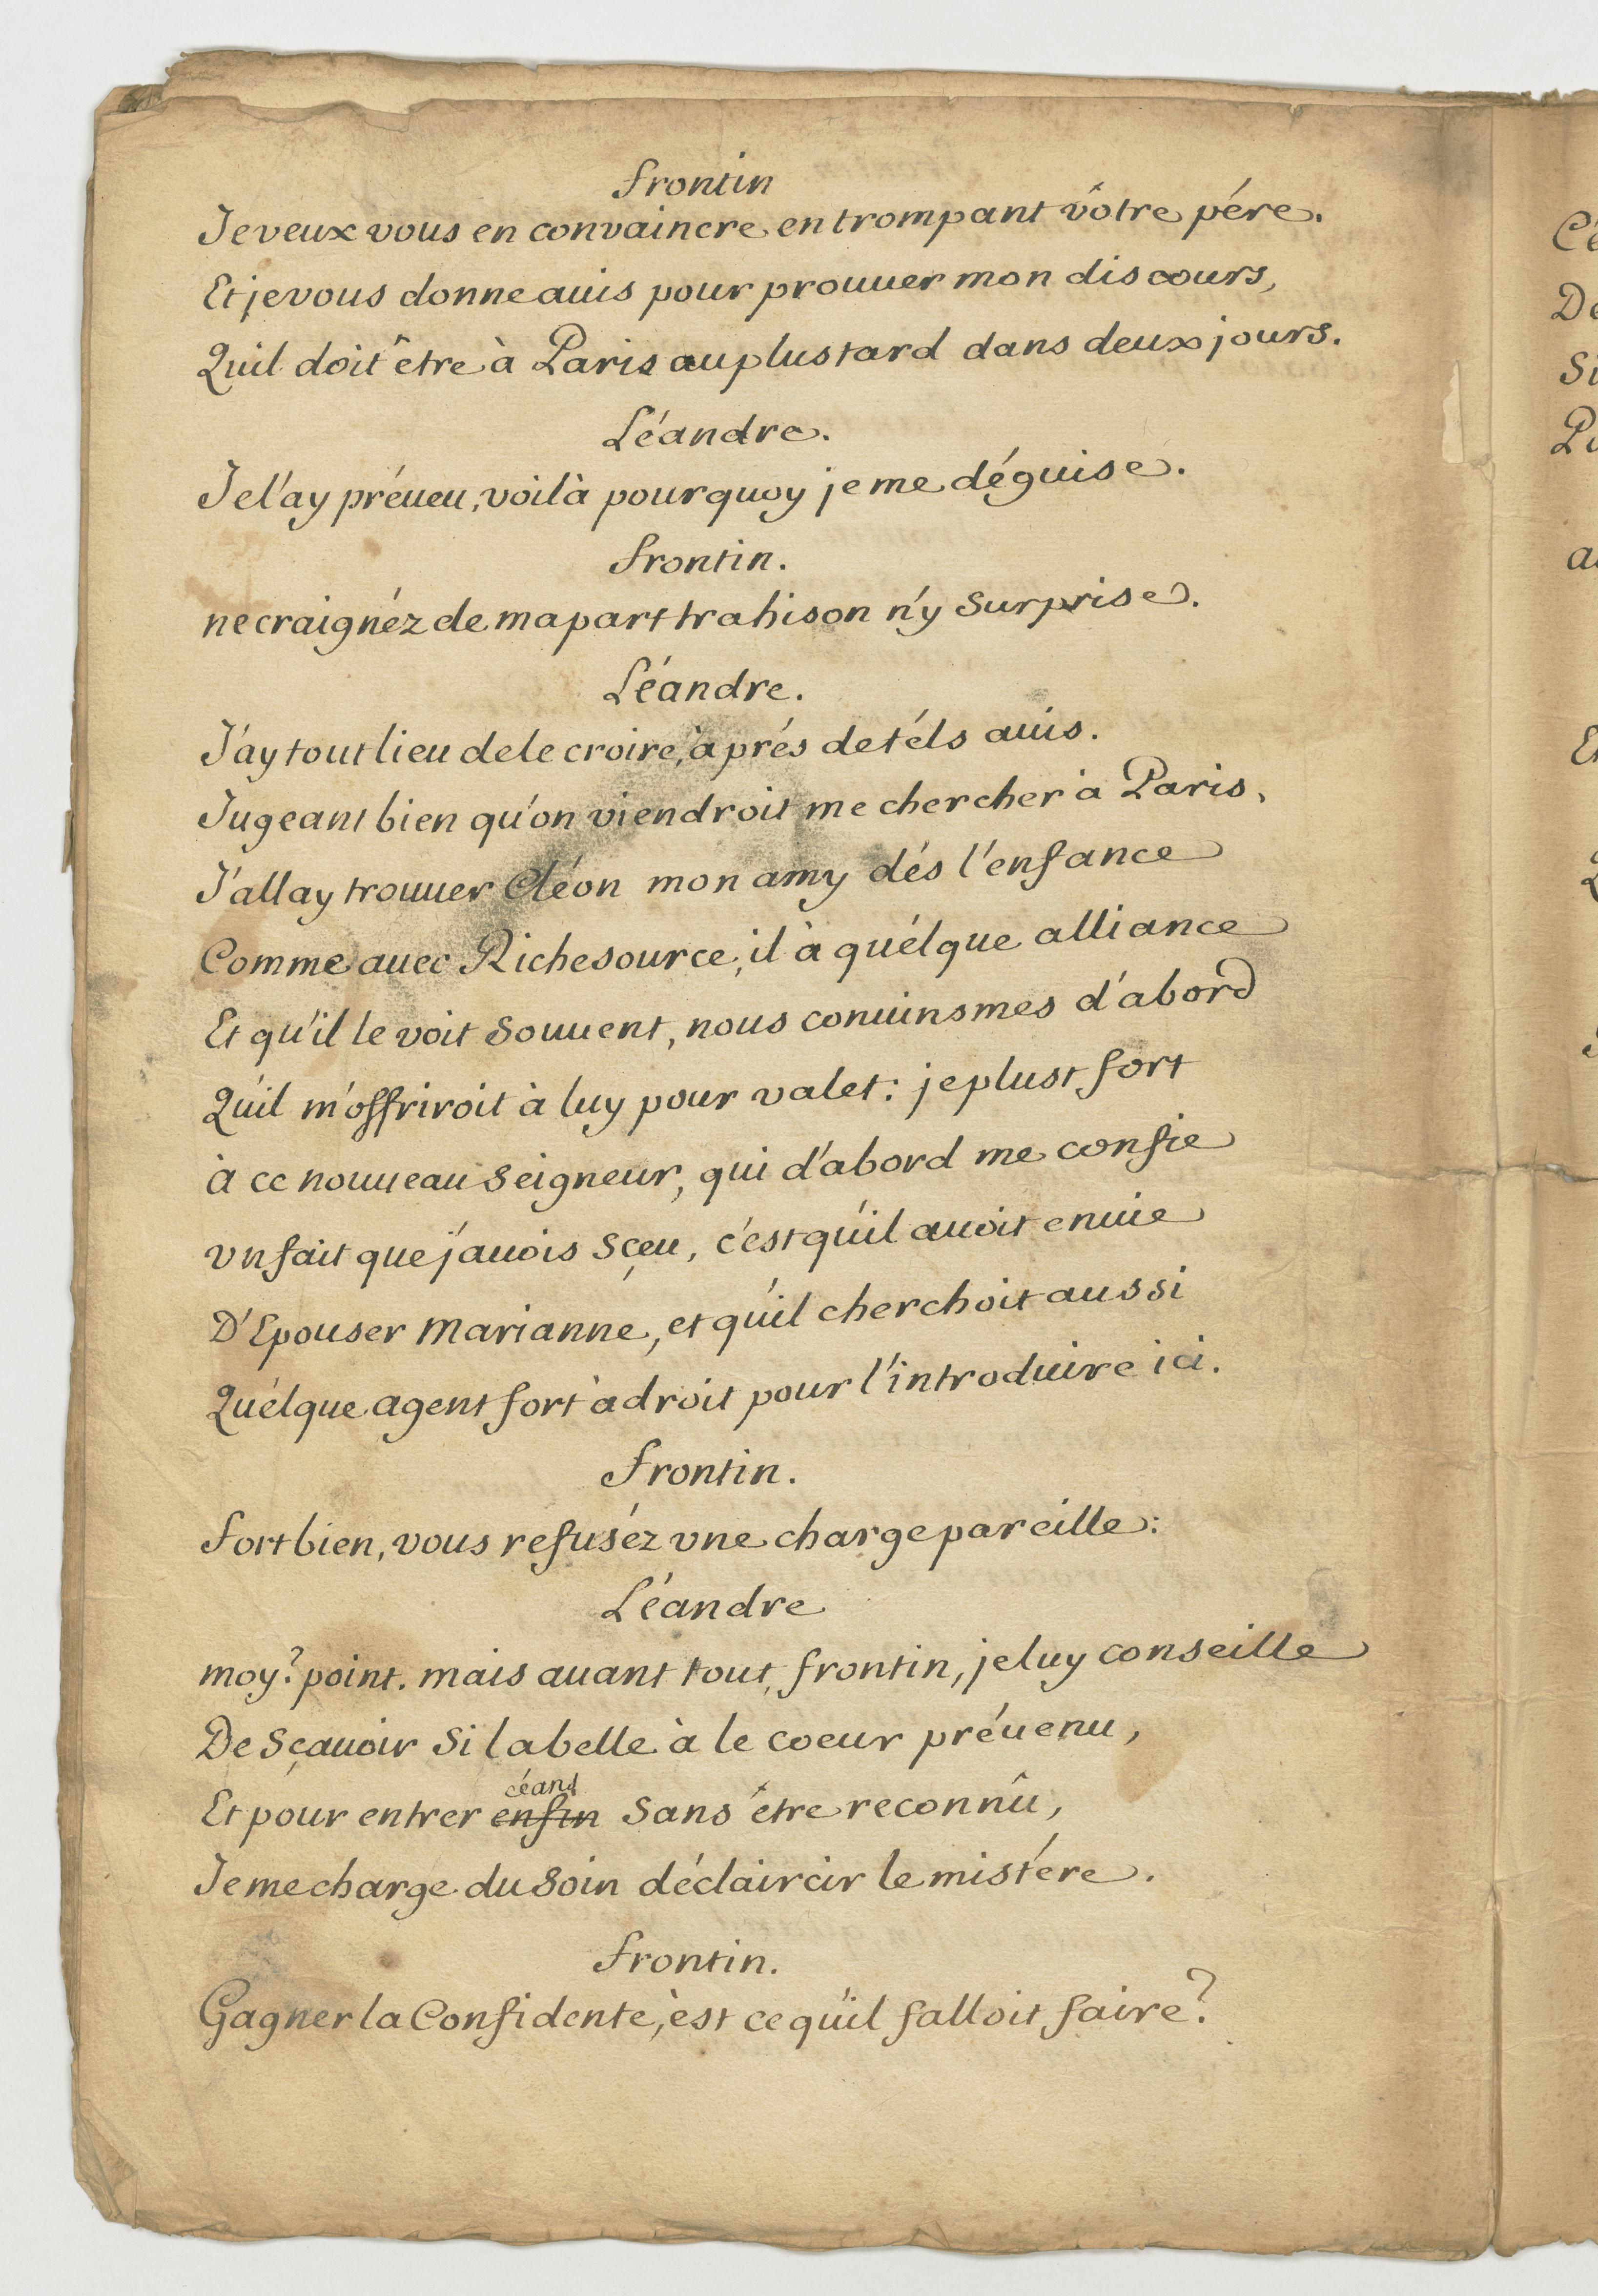 frontin
Je veux vous en convaincre en trompant vôtre pére.
Et je vous donne auis pour prouuer mon discours,
Quil doit être à Paris au plus tard dans deux jours.
Léandre.
Je l'ay préueu, voilà pourquoy je me déguise.
frontin.
ne craignéz de ma part trahison n'y surprise.
Léandre.
J'ay tout lieu de le croire, àprés de téls auis.
Jugeant bien qu'on viendroit me chercher à Paris,
J'allay trouuer Cléon mon amy dés l'enfance
Comme auec Richesource, il à quélque alliance
Et qu'il le voit souuent, nous conuinsmes d'abord
Qu'il m'offriroit à luy pour valet: je plust fort
à ce nouueau seigneur, qui d'abord me confie
vn fait que j'auois sçeu, c'est qu'il auoit enuie
D'Epouser Marianne, et qu'il cherchoit aussi
Quélque agent fort àdroit pour l'introduire ici.
frontin.
fort bien, vous refuséz vne charge pareille:
Léandre
moy? point. mais auant tout, frontin, je luy conseille
De sçauoir si la belle à le coeur préuenu,
céans
Et pour entrer enfin sans être reconnû,
Je me charge du soin déclaircir le mistére.
frontin.
Gagner la Confidente, èst ce qu'il falloit faire?